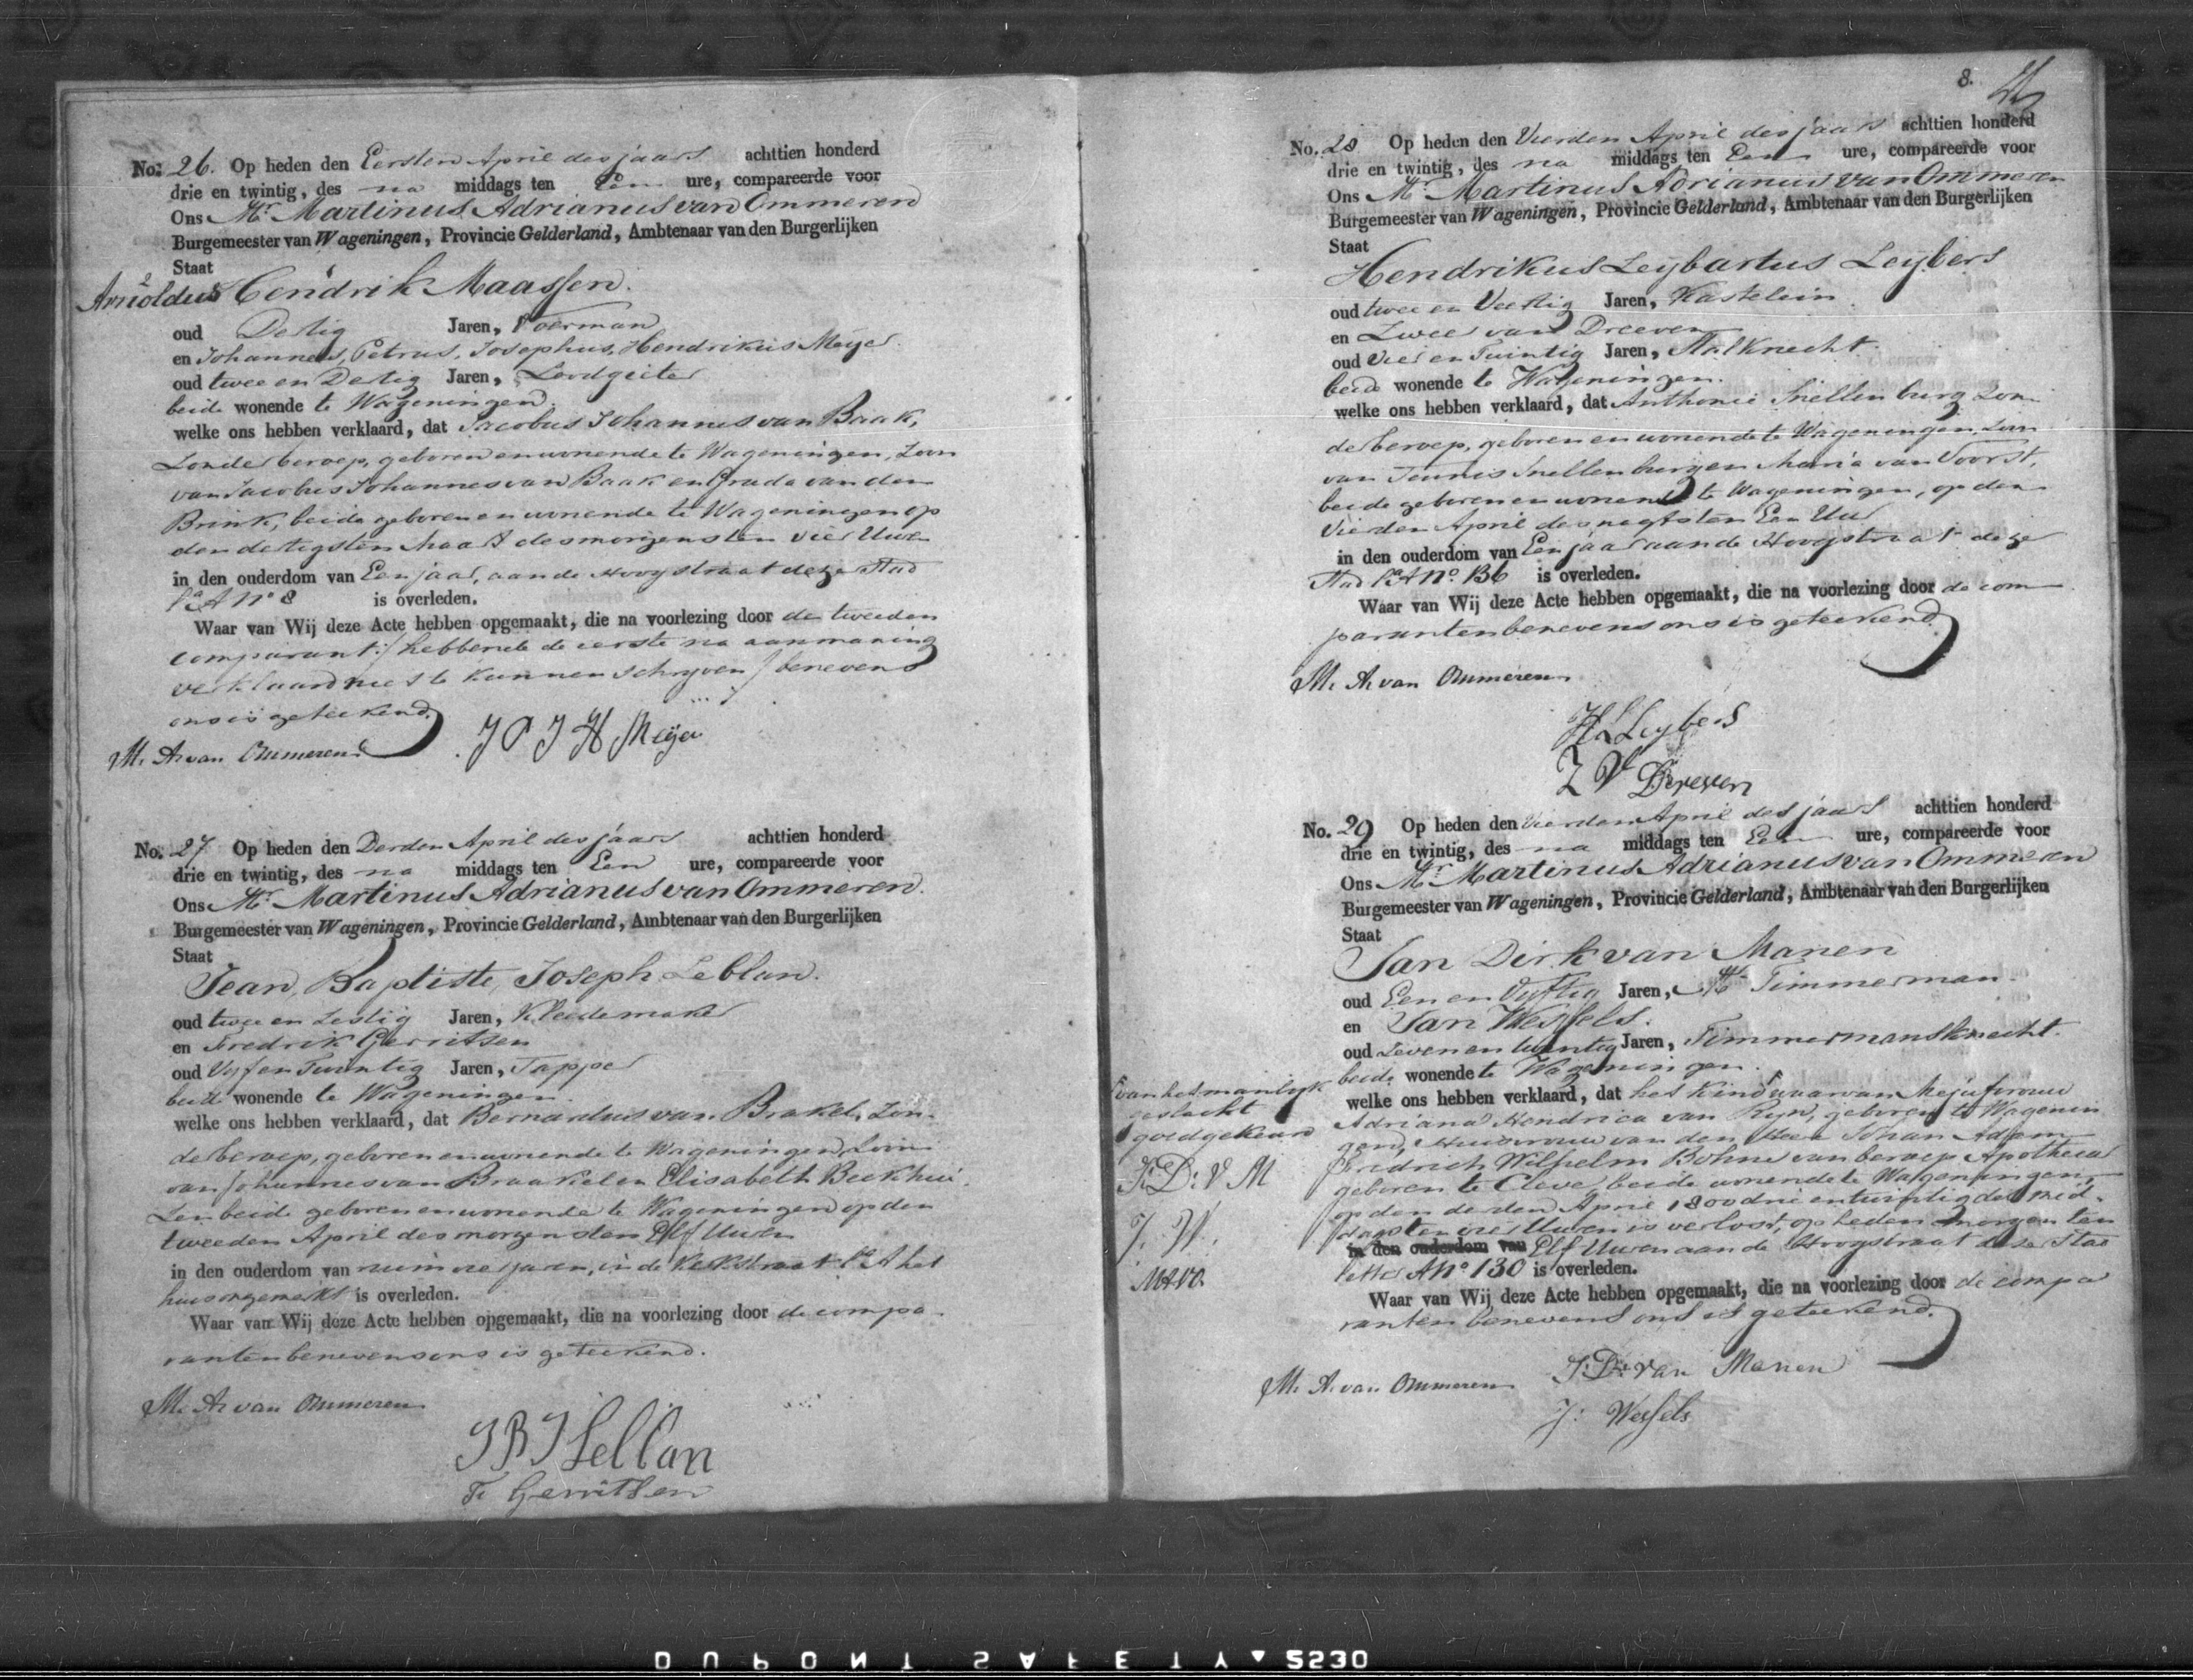 No. 26. Op heden den Eersten April des jaars achttien honderd
drie en twintig, des na middags ten Een ure, compareerde voor
Ons Mr. Martinus Adrianus van Ommeren
Burgemeester van Wageningen, Provincie Gelderland, Ambtenaar van den Burgerlijken
Staat
Arnoldus Hendrik Maassen.
oud Dertig Jaren, Voerman
en Johannes, Petrus, Josephus, Hendrikus Meijer
oud twee en Dertig Jaren, Loodgieter
beide wonende te Wageningen
welke ons hebben verklaard, dat Jacobus Johannes van Baak,
Zonder beroep, geboren en wonende te Wageningen, Zoon
van Jacobus Johannes van Baak en Grada van den
Brink, beide geboren en wonende te Wageningen op
den dertigsten Maart des morgens ten vier Uure
in den ouderdom van Een jaar, aan de Hoogstraat dezer Stad
La A No 8 is overleden.
Waar van Wij deze Acte hebben opgemaakt, die na voorlezing door de tweeden
comparant / hebbende de eerste na aanmaning
verklaard niet te kunnen schryven / benevens
ons is geteekend.
M. A. van Ommeren
J P J H Meijer
No. 27 Op heden den Derden April des jaars achttien honderd
drie en twintig, des na middags ten Een ure, compareerde voor
Ons Mr. Martinus Adrianus van Ommeren.
Burgemeester van Wageningen, Provincie Gelderland, Ambtenaar van den Burgerlijken
Staat
Jean, Baptiste, Joseph Leblan.
oud twee en Zestig Jaren, Kleedemaker
en Fredrik Gerritsen
oud Vyf en Twintig Jaren, Tapper
beide wonende te Wageningen.
welke ons hebben verklaard, dat Bernardus van Brakel, Zon-
der beroep, geboren en wonende te Wageningen, Zoon
van Johannes van Braakel en Elisabeth Beekhui-
zen beide geboren en wonende te Wageningen op den
tweeden April des morgens ten Elf Uuren
in den ouderdom van ruim drie jaren, in de Kerkstraat La A het
huis ongemerkt is overleden.
Waar van Wij deze Acte hebben opgemaakt, die na voorlezing door de compa-
ranten benevens ons is geteekend.
M. A. van Ommeren
J B J Leblan
F. Gerritsen
8.
No. 28 Op heden den Vierden April des jaars achttien honderd
drie en twintig, des na middags ten Een ure, compareerde voor
Ons Mr. Martinus Adrianus van Ommeren
Burgemeester van Wageningen, Provincie Gelderland, Ambtenaar van den Burgerlijken
Staat
Hendrikus Leybartus Leybers
oud twee en Veertig Jaren, Kastelein
en Zweer van Dreeven
oud Vier en Twintig Jaren, Stalknecht
beide wonende te Wageningen.
welke ons hebben verklaard, dat Anthonie Snellenburg Zon-
der beroep, geboren en wonende te Wageningen, Zoon
van Teunis Snellenburg en Maria van Voorst,
beide geboren en wonende te Wageningen, op den
Vierden April des nagts ten Een Uur
in den ouderdom van Een jaar aan de Hoogstraat dezer
Stad La A No. 136 is overleden.
Waar van Wij deze Acte hebben opgemaakt, die na voorlezing door de com-
paranten benevens ons is geteekend.
M. A. van Ommeren
H L Leybers
Z V Dreeven
No. 29 Op heden den Vierden April des jaars achttien honderd
drie en twintig, des na middags ten Een ure, compareerde voor
Ons Mr. Martinus Adrianus van Ommeren
Burgemeester van Wageningen, Provincie Gelderland, Ambtenaar van den Burgerlijken
Staat
Jan Dirk van Manen
oud Een en Vyftig Jaren, Mr Timmerman.
en Jan Wessels.
oud Zeven en twintig Jaren, Timmermansknecht.
beide wonende te Wageningen.
welke ons hebben verklaard, dat het Kind waarvan Mejufvrouw
Adriana Hendrica van Ryn, geboren te Wagenin
gen, Huisvrouw van den Heer Johan Adam
Fredrich Wilhelm Böhne van beroep Apothecar
geboren te Cleve, beide wonende te Wageningen,
op den derden April 1800 drie en twintig des mid-
dags ten vier Uuren is verlost, op heden morgen ten
in den ouderdom van Elf Uuren aan de Hoogstraat dezer Stad
letter A No. 130 is overleden.
Waar van Wij deze Acte hebben opgemaakt, die na voorlezing door de compa
ranten benevens ons is geteekend.
van het manlyk
geslacht
goedgekeurd
J. D. V M
J. W.
MAVO.
M. A. van Ommeren
J. D. van Manen
J: Wessels
DUPONT SAFETY 5230